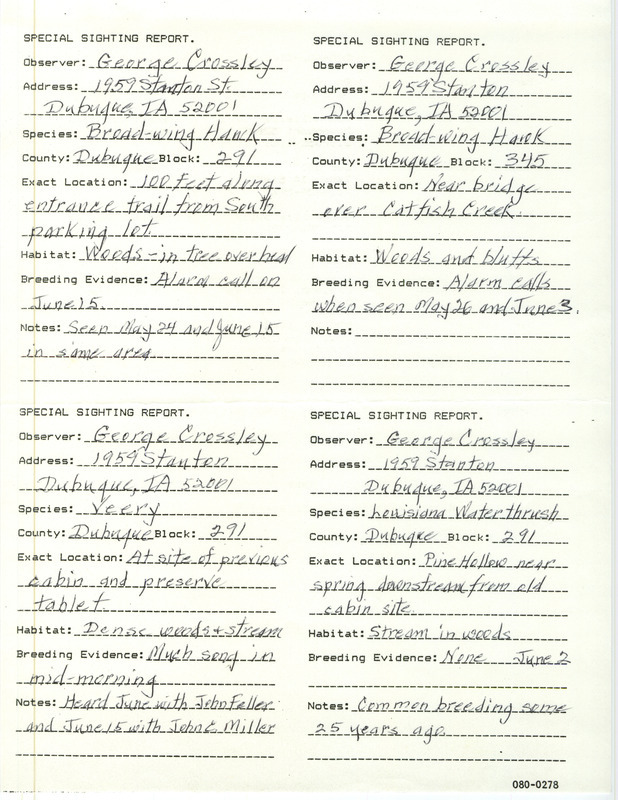 SPECIAL SIGHTING REPORT.
Observer: George Crossley
Address: 1959 Stanton St.
Dubuque, IA 52001
Species: Broad-wing Hawk
County: Dubuque Block: 291
Exact Location: 100 feet along
entrance trail from South
parking lot
Habitat: Woods - in tree overhead
Breeding Evidence: Alarm call on
June 15.
Notes: Seen May 24 and June 15
in same area
SPECIAL SIGHTING REPORT.
Observer: George Crossley
Address: 1959 Stanton
Dubuque, IA 52001
Species: Broad-wing Hawk
County: Dubuque Block: 345
Exact Location: Near bridge
over Catfish Creek.
Habitat: Woods and bluffs
Breeding Evidence: Alarm calls
when seen May 26 and June 3.
Notes:
SPECIAL SIGHTING REPORT.
Observer: George Crossley
Address: 1959 Stanton
Dubuque, IA 52001
Species: Veery
County: Dubuque Block: 291
Exact Location: At site of previous
cabin and preserve
tablet
Habitat: Dense woods + stream
Breeding Evidence: Much song in
mid-morning
Notes: Heard June with John Feller
and June 15 with John & Miller
SPECIAL SIGHTING REPORT.
Observer: George Crossley
Address: 1959 Stanton
Dubuque, IA 52001
Species: Louisiana Waterthrush
County: Dubuque Block: 291
Exact Location: Pine Hollow near
spring downstream from old
cabin site.
Habitat: Stream in woods
Breeding Evidence: None June 2
Notes: Common breeding some
25 years ago
080-0278